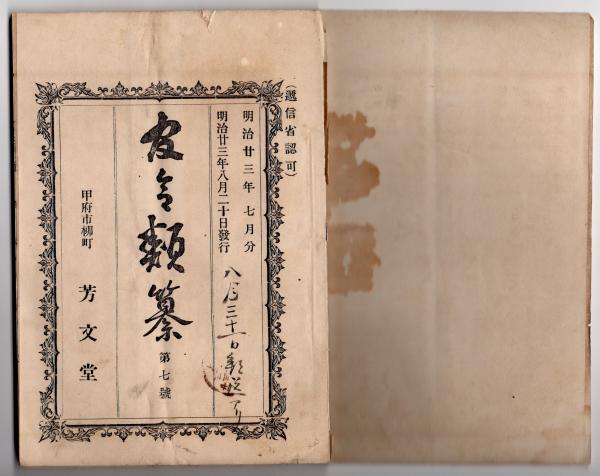 (遞信省認可)
明治廿三年七月分
明治廿三年八月二十日發行
八月三十一日
官令類纂
第七號
甲府市柳町
芳文堂